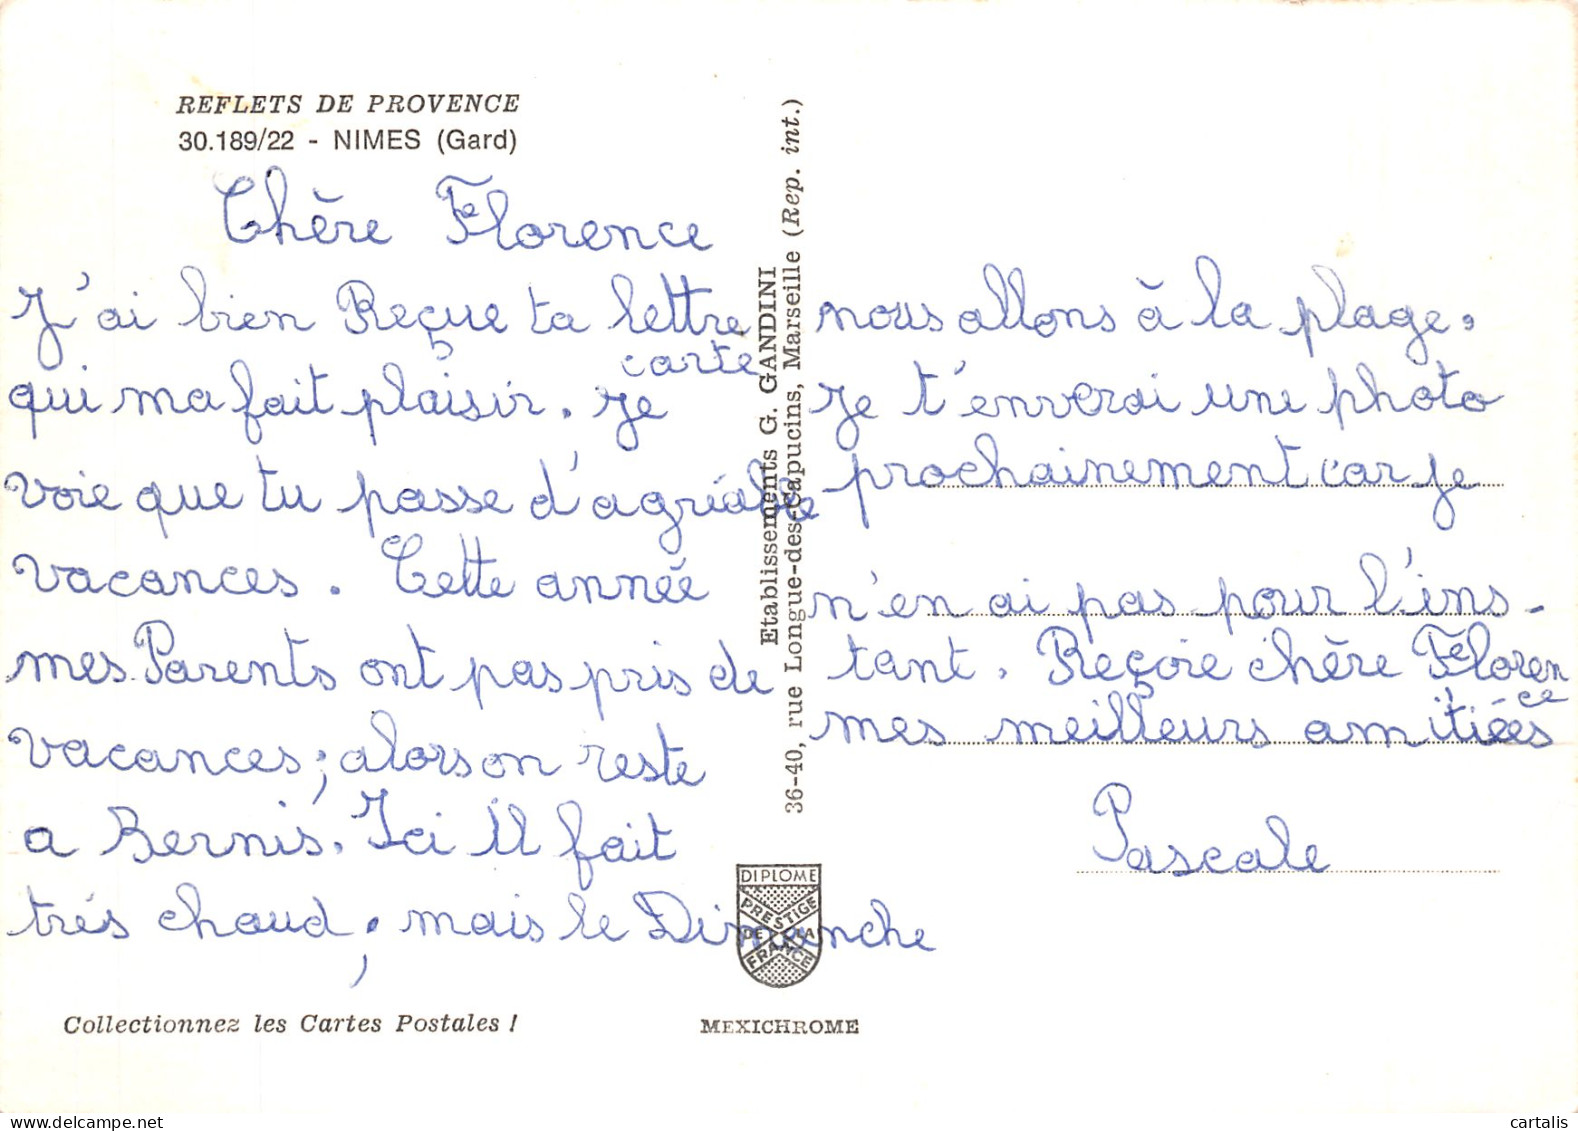 REFLETS DE PROVENCE
30.189/22 - NIMES (Gard)
Chère Florence
J'ai bien Reçue ta lettre
carte
qui ma fait plaisir. Je
voie que tu passe d'agréable
vacances. Cette année
mes Parents ont pas pris de
vacances; alors on reste
a Bernis. Ici il fait
trés chaud, mais le Dimanche
nous allons à la plage.
Je t'enverai une photo
prochainement car je
n'en ai pas pour l'ins-
tant. Reçoie chère Floren
ce
mes meilleurs amitiées
Pascale
Etablissements G. GANDINI
36-40, rue Longue-des-Capucins, Marseille (Rep. int.)
DIPLOME
PRESTIGE
DE LA
FRANCE
Collectionnez les Cartes Postales !
MEXICHROME
delcampe.net
cartalis